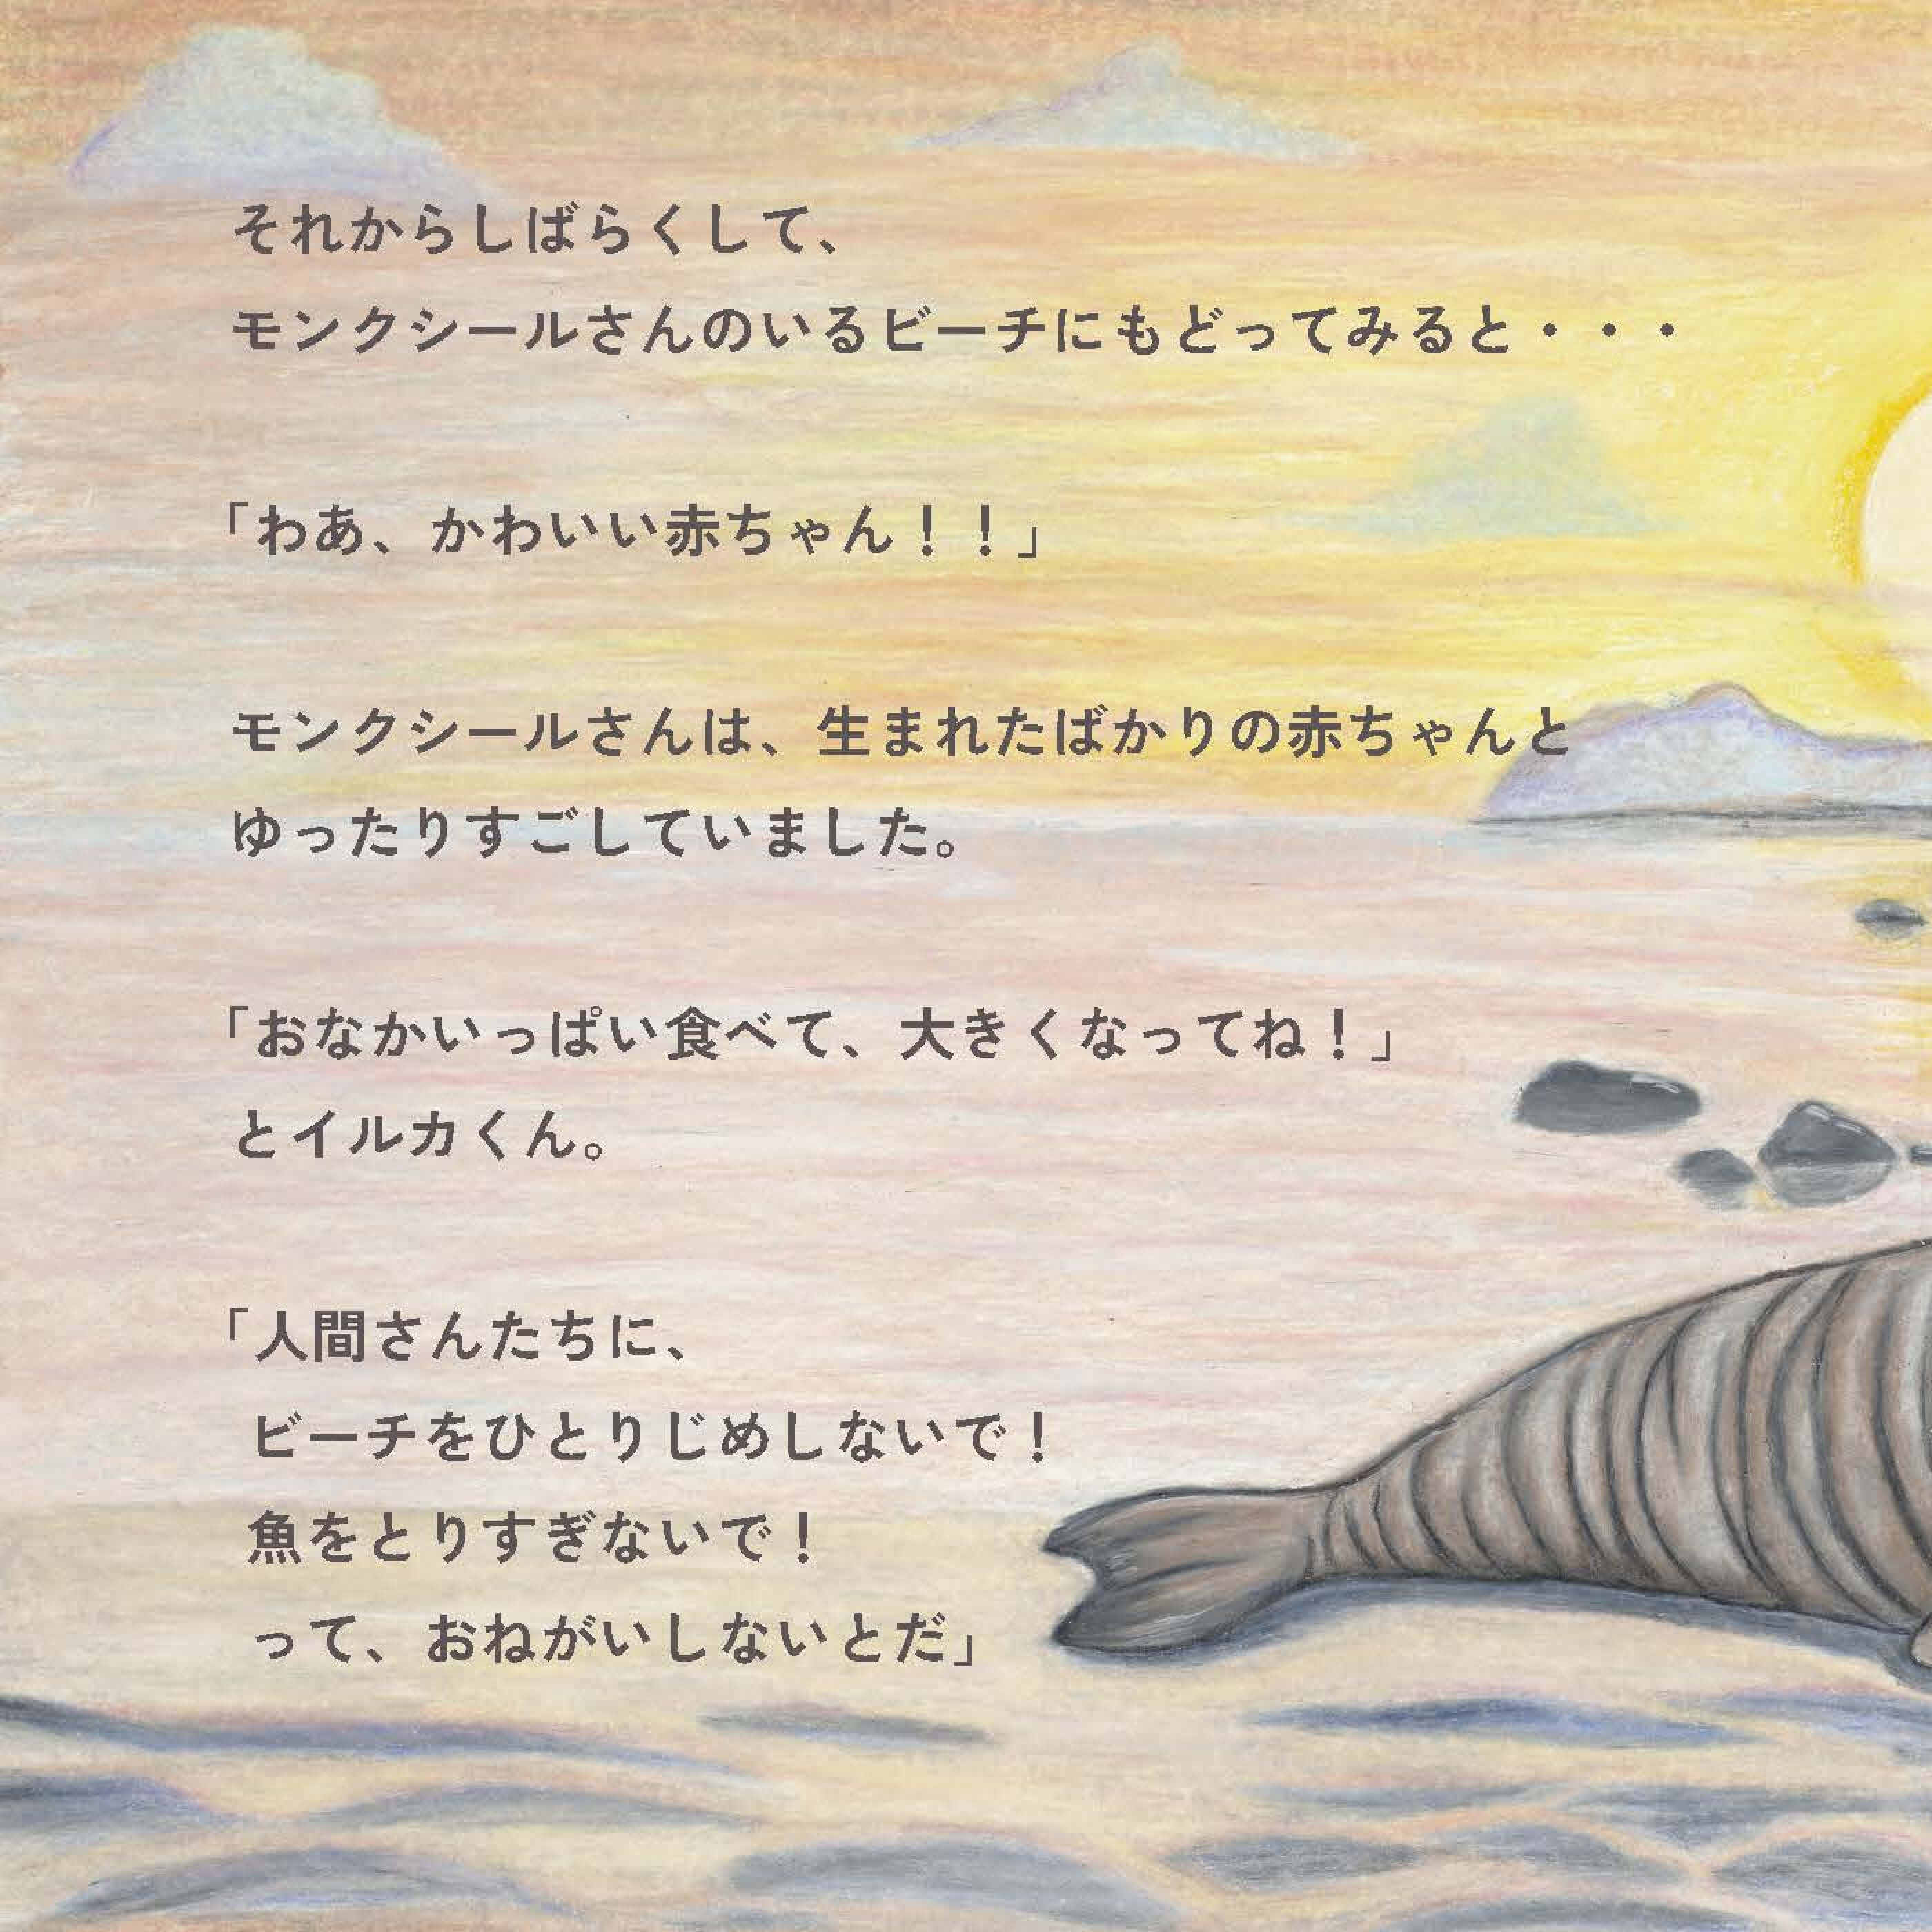 それからしばらくして、
モンクシールさんのいるビーチにもどってみると・・・
「わあ、かわいい赤ちゃん！！」
モンクシールさんは、生まれたばかりの赤ちゃんと
ゆったりすごしていました。
「おなかいっぱい食べて、大きくなってね！」
とイルカくん。
「人間さんたちに、
ビーチをひとりじめしないで！
魚をとりすぎないで！
って、おねがいしないとだ」